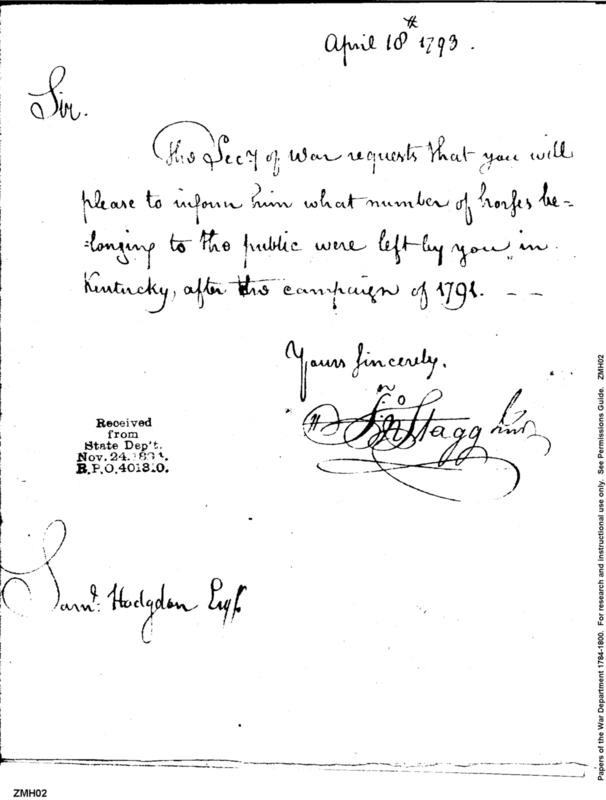 April 18th 1793.
Sir.
The Secy of War requests that you will
please to inform him what number of horses be=
=longing to the public were left by you in
Kentucky, after the campaign of 1791. — —
Yours Sincerely.
Jno Stagg Junr
Received
from
State Dep't.
Nov. 24.
B.P.O.401810.
Saml. Hodgdon Esqr.
Papers of the War Department 1784-1800. For research and instructional use only. See Permissions Guide. ZMH02
ZMH02